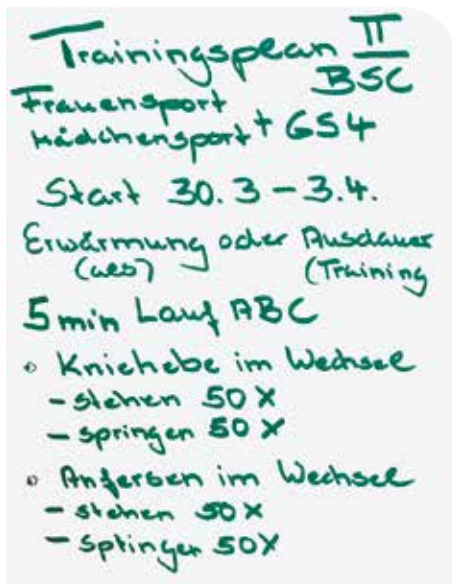 Trainingsplan II
BSC
Frauensport
Mädchensport + GS4
Start 30.3 – 3.4.
Erwärmung oder Ausdauer
(Training
5 min Lauf ABC
• Kniehebe im Wechsel
– stehen 50 X
– springen 50 X
• Anfersen im Wechsel
– stehen 50 X
– sptingen 50X